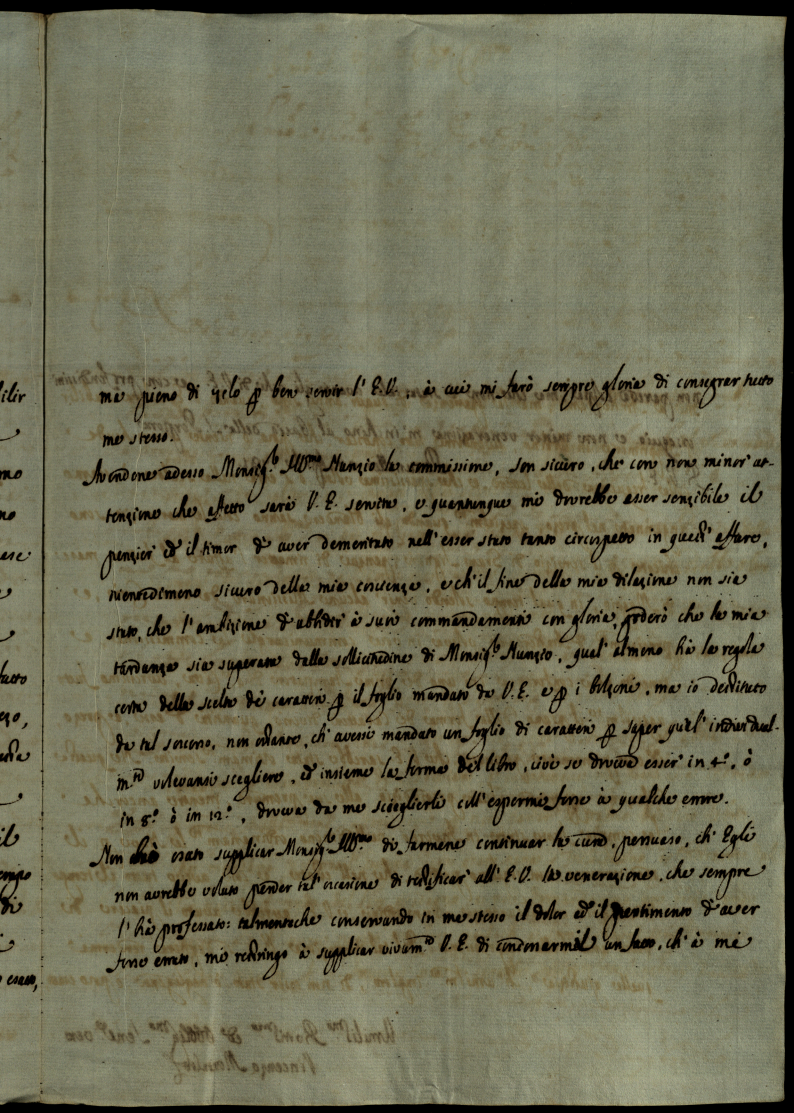 ma pieno di zelo p ben servir l'E.V., à cui mi farò sempre gloria di consegrar tutto
me stesso.
Avendone adesso Monsig.r Ill.mo Nunzio la commissione, son sicuro, che con non minor at-
tenzione che affetto sarà V.E. servita, e quantunque mi dovrebbe esser sensibile il
pensier ed il timor d'aver demeritato nell'esser stato tanto circospetto in quest'affare,
nientedimeno sicuro della mia coscienza, e ch'il fine della mia dilazione non sia
stato, che l'ambizione d'abbidir à suoi commandamenti con gloria, goderò che la mia
tardanza sia superata dalla sollicitudine di Monsig.r Nunzio, qual'almeno hà la regola
certa della scelta de caratteri p il foglio mandato da V.E. e p i bolzoni, ma io destituto
da tal soccorso, non ostante, ch'avessi mandato un foglio di caratteri p saper qual'individual-
m.te volevansi scegliere, ed insieme la forma del libro, cioè se doveva esser in 4.o, ò
in 8.o ò in 12.o, doveva da me scieglierli coll'espormi forse à qualche errore.
Non hò osato supplicar Monsig.r Ill.mo di farmene continuar la cura, persuaso, ch'Egli
non avrebbe voluto perder tal'occasione di testificar'all'E.V. la venerazione, che sempre
l'hà professato: talmenteche conservando in me stesso il dolor ed il pentimento d'aver
forse errato, mi restringo à supplicar vivam.te V.E. di condonarmi un fatto, ch'à me